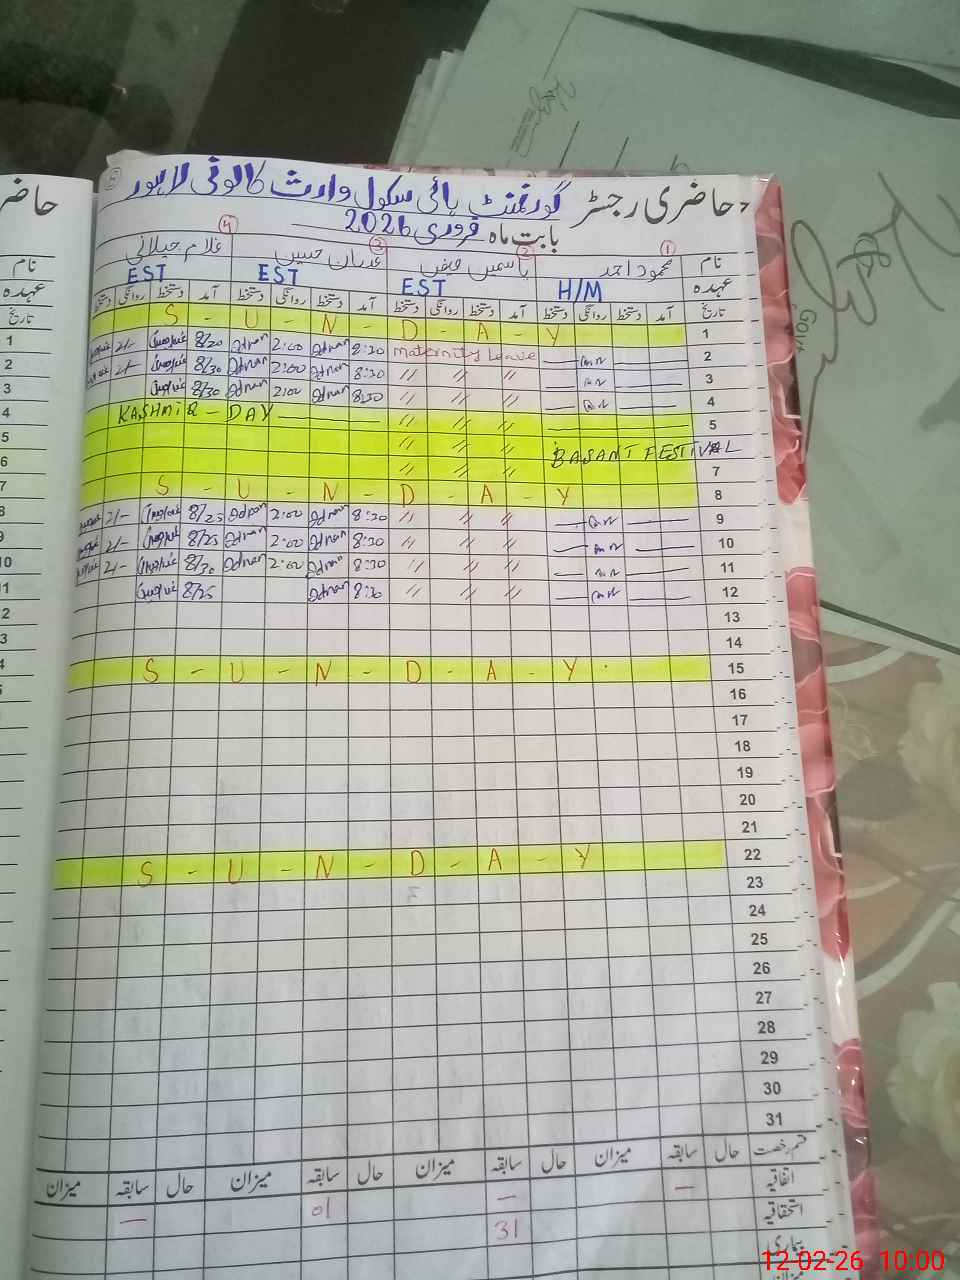 حاضری رجسٹر گورنمنٹ ہائی سکول وارث کالونی لاہور
بابت ماہ فروری 2026
نام محمود احمد یاسمین فیض عدنان حسین غلام جیلانی
1 2 3 4
عہدہ H/M EST EST EST
تاریخ آمد دستخط روانگی دستخط آمد دستخط روانگی دستخط آمد دستخط روانگی دستخط آمد دستخط روانگی دستخط
1 S - U - N - D - A - Y
2 Maternity Leave 8:30 Adnan 2:00 Adnan 8/20 2/-
3 〃 〃 〃 8:30 Adnan 2:00 Adnan 8/30 2/-
4 〃 〃 〃 8:30 Adnan 2:00 Adnan 8/30
5 〃 〃 〃 KASHMIR - DAY
6 〃 〃 〃 BASANT FESTIVAL
7 〃 〃 〃
8 S - U - N - D - A - Y
9 〃 〃 〃 8:30 Adnan 2:00 Adnan 8/25 2/-
10 〃 〃 〃 8:30 Adnan 2:00 Adnan 8/25 2/-
11 〃 〃 〃 8:30 Adnan 2:00 Adnan 8/30 2/-
12 〃 〃 〃 8:30 Adnan 8/25
13
14
15 S - U - N - D - A - Y
16
17
18
19
20
21
22 S - U - N - D - A - Y
23
24
25
26
27
28
29
30
31
قسم رخصت حال سابقہ میزان حال سابقہ میزان حال سابقہ میزان حال سابقہ میزان
اتفاقیہ — — 01 —
استحقاقیہ 31
بیماری
میزان
حاضر
نام
عہدہ
تاریخ
1
2
3
4
5
6
7
8
9
10
11
12
13
14
Govt
12-02-26 10:00